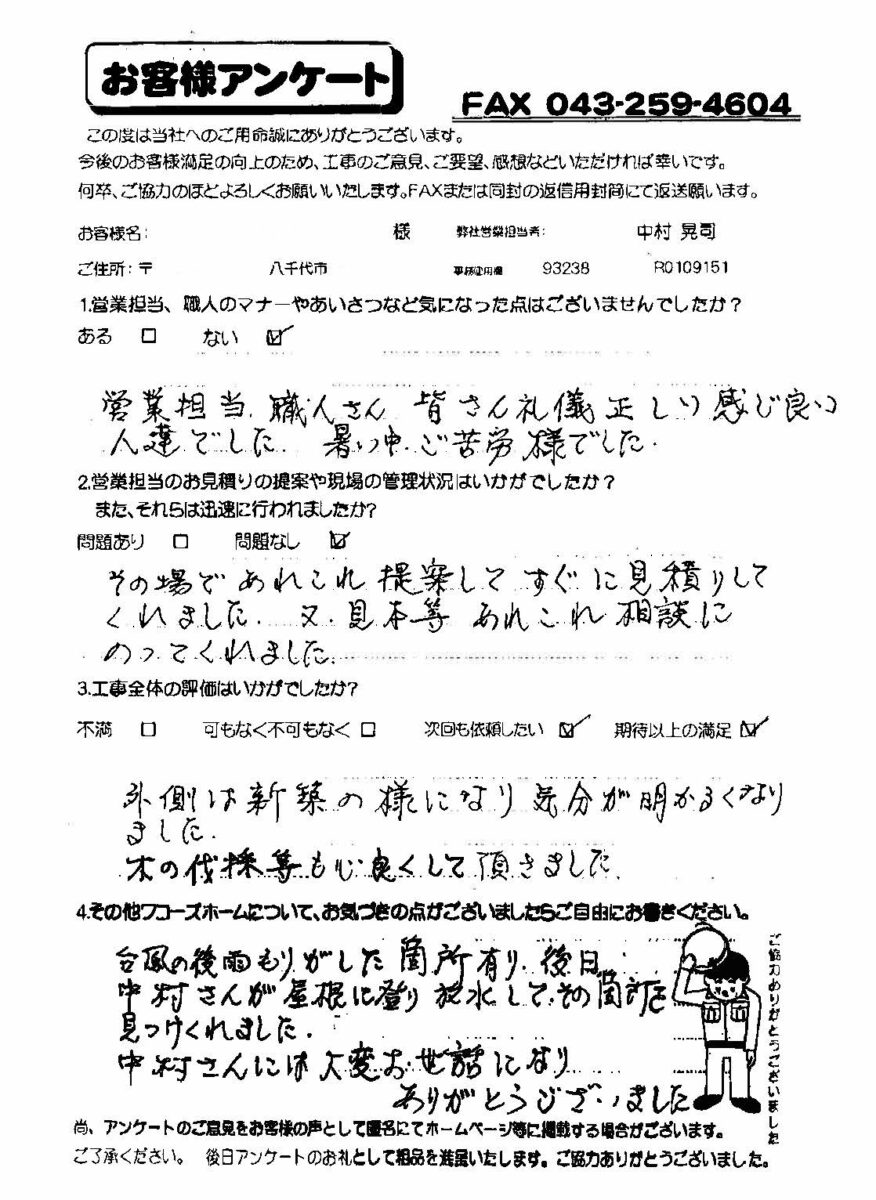 お客様アンケート
FAX 043-259-4604
この度は当社へのご用命誠にありがとうございます。
今後のお客様満足の向上のため、工事のご意見、ご要望、感想などいただければ幸いです。
何卒、ご協力のほどよろしくお願いいたします。FAXまたは同封の返信用封筒にて返送願います。
お客様名: 様 弊社営業担当者: 中村 晃司
ご住所:〒 八千代市 事務処理用欄 93238 R0109151
1.営業担当、職人のマナーやあいさつなど気になった点はございませんでしたか?
ある □ ない ☑
営業担当、職人さん 皆さん礼儀正しい感じ良い
人達でした。暑い中、ご苦労様でした。
2.営業担当のお見積りの提案や現場の管理状況はいかがでしたか?
また、それらは迅速に行われましたか?
問題あり □ 問題なし ☑
その場であれこれ提案してすぐに見積りして
くれました。又、見本等あれこれ相談に
のってくれました。
3.工事全体の評価はいかがでしたか?
不満 □ 可もなく不可もなく □ 次回も依頼したい ☑ 期待以上の満足 ☑
外側は新築の様になり気分が明かるくなり
ました。
木の伐採等も心良くして頂きました。
4.その他ワコーズホームについて、お気づきの点がございましたらご自由にお書きください。
台風の後雨もりがした箇所有り、後日
中村さんが屋根に登り放水して、その箇所を
見つけくれました。
中村さんには大変お世話になり
ありがとうございました
ご協力ありがとうございました
尚、アンケートのご意見をお客様の声として匿名にてホームページ等に掲載する場合がございます。
ご了承ください。 後日アンケートのお礼として粗品を進呈いたします。ご協力ありがとうございました。